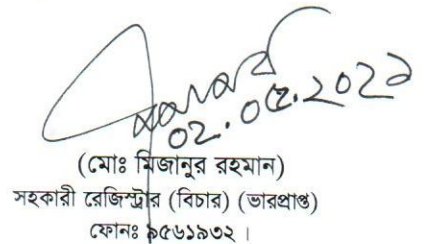 ০২.০৫.২০২১
(মোঃ মিজানুর রহমান)
সহকারী রেজিস্ট্রার (বিচার) (ভারপ্রাপ্ত)
ফোনঃ ৯৫৬১৯৩২ ।